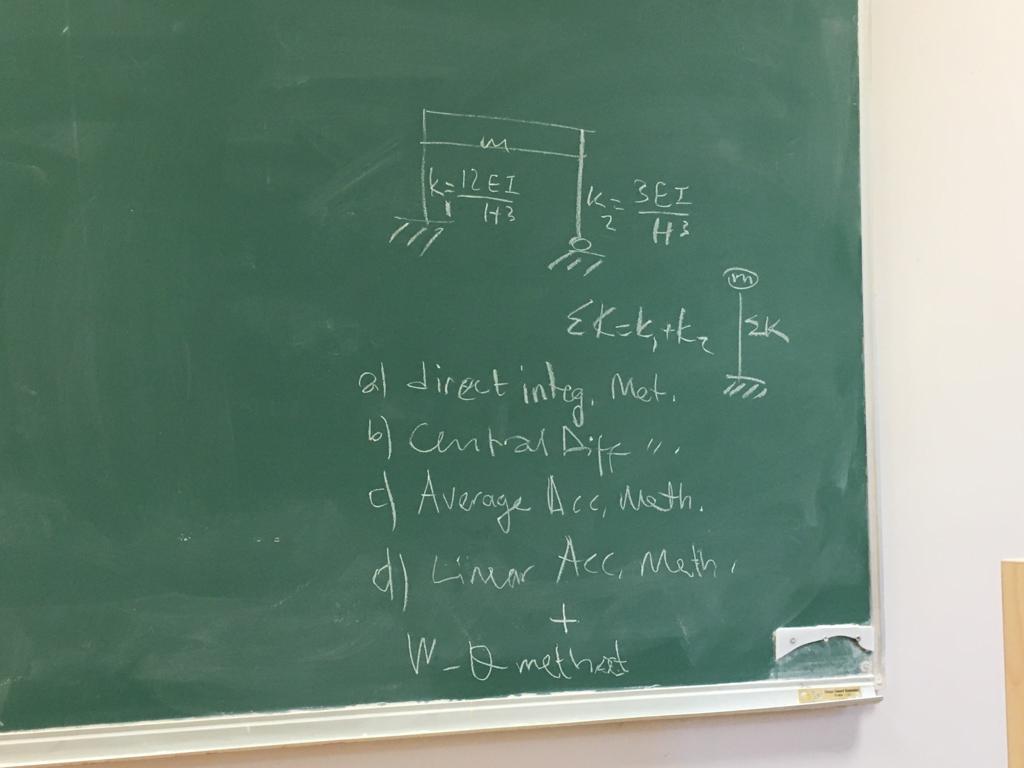 m
k₁ = 12EI/H³
k₂ = 3EI/H³
m
ΣK = k₁ + k₂
ΣK
a) direct integ. Met.
b) Central Diff 〃.
c) Average Acc. Meth.
d) Linear Acc. Meth.
+
W-θ method